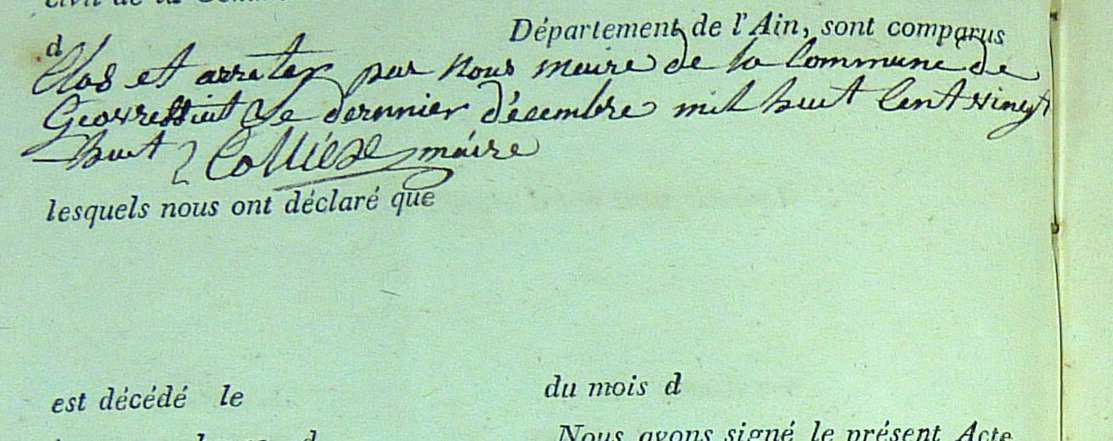 civil de la Comm
Département de l'Ain, sont comparus
d
Clos et arreter par nous maire de la Commune de
Geovressiat Le dernnier décembre mil huit Cent vingt
huit Collièse maire
lesquels nous ont déclaré que
est décédé le du mois d
d Nous avons signé le présent Acte